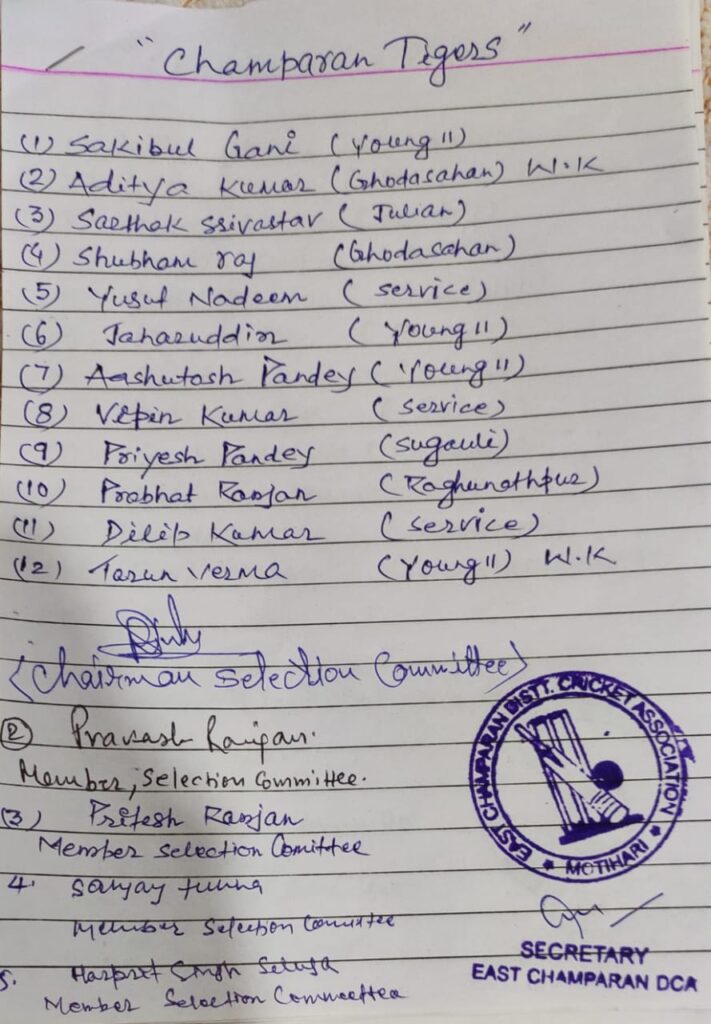 "Champaran Tigers"
(1) Sakibul Gani (Young 11)
(2) Aditya Kumar (Ghodasahan) W.K
(3) Sarthak Srivastav (Julian)
(4) Shubham raj (Ghodasahan)
(5) Yusuf Nadeem (service)
(6) Jaharuddin (Young 11)
(7) Aashutosh Pandey (Young 11)
(8) Vipin Kumar (service)
(9) Priyesh Pandey (sugauli)
(10) Prabhat Ranjan (Raghunathpur)
(11) Dilip Kumar (service)
(12) Tarun Verma (Young 11) W.K
(Chairman Selection Committee)
(2) Prakash Ranjan.
Member, Selection Committee.
(3) Pritesh Ranjan
Member Selection Comittee
4. Sanjay
Member Selection Committee
5. Harpret Singh
Member Selection Committee
EAST CHAMPARAN DISTT. CRICKET ASSOCIATION
★ MOTIHARI ★
SECRETARY
EAST CHAMPARAN DCA